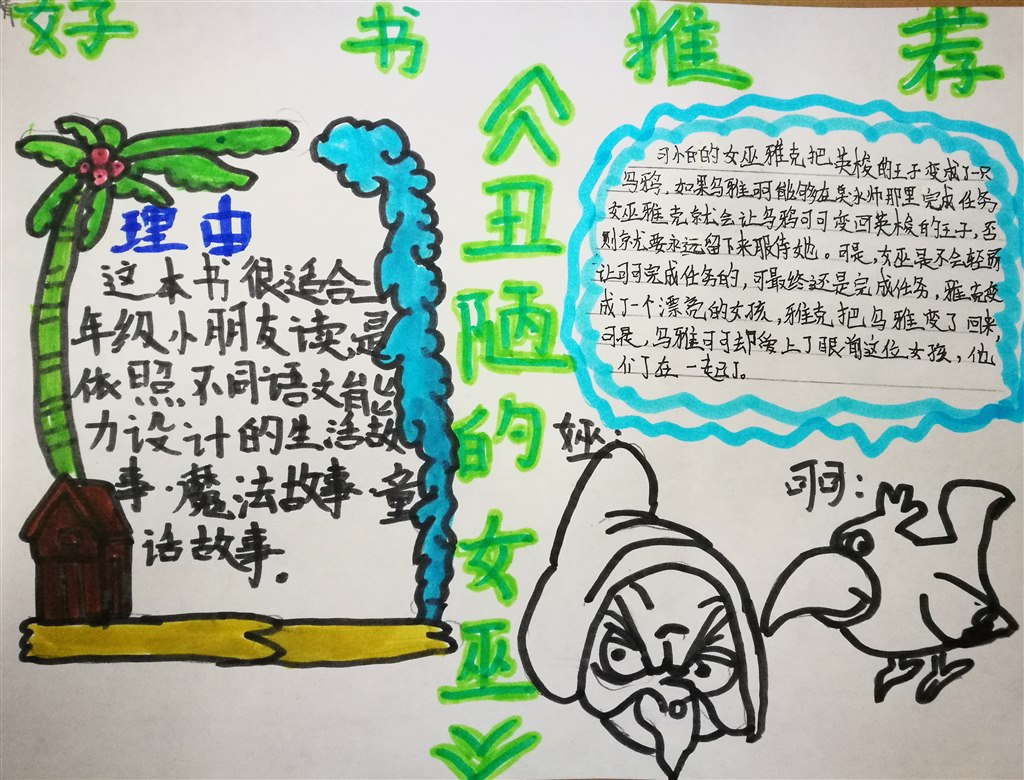 好书推荐
《丑陋的女巫》
理由
这本书很适合
年级小朋友读,是
依照不同语文能
力设计的生活故
事·魔法故事·童
话故事.
可怕的女巫雅克把英梭的王子变成了一只
乌鸦,如果乌雅可能够在臭永师那里完成任务
女巫雅克就会让乌鸦可可变回英梭的王子,否
则就要永远留下来服侍她。可是,女巫是不会轻易
让可可完成任务的,可最终还是完成任务,雅克变
成了一个漂亮的女孩,雅克把乌雅变了回来,
可是,乌雅可可却爱上了眼前这位女孩,他
们在一起了。
女巫:
可可: